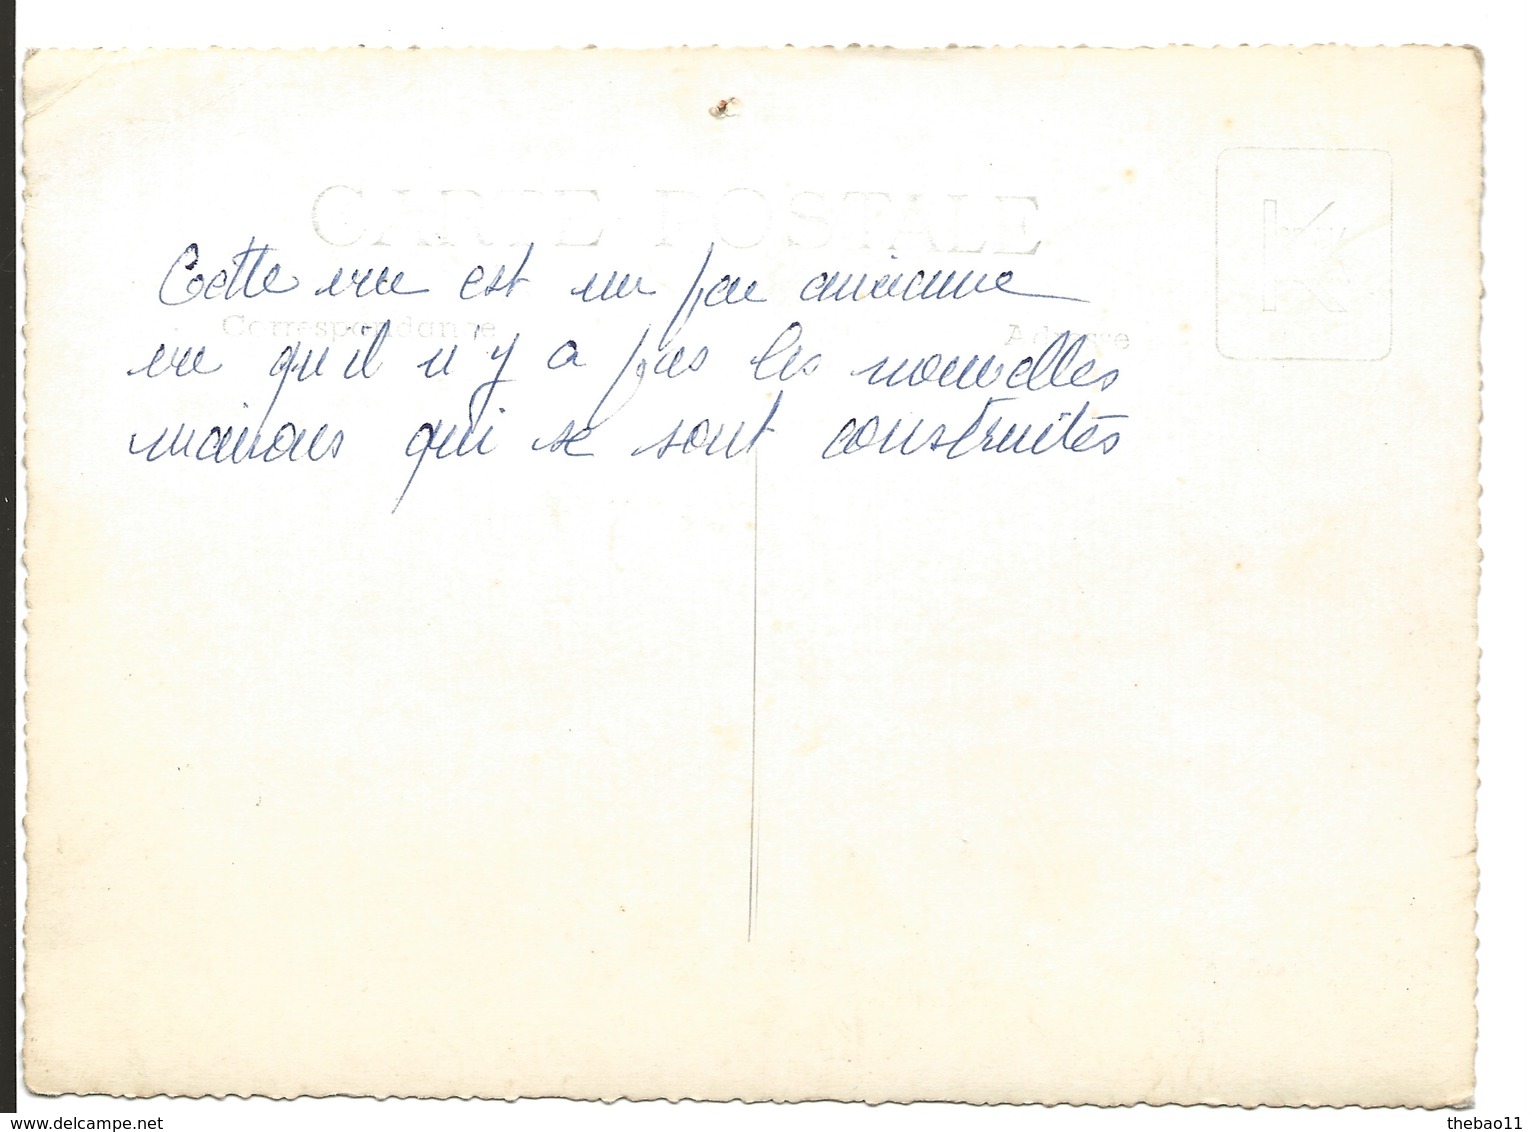 CARTE POSTALE
Cette vue est un peu ancienne
Correspondance
Adresse
vu qu'il n'y a pas les nouvelles
maisons qui se sont construites
K
delcampe.net
thebao11